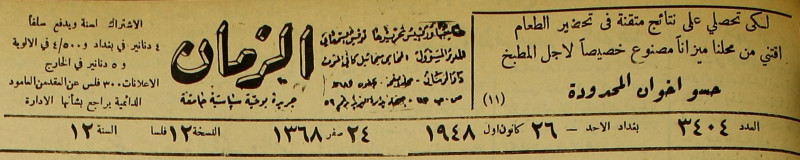 لكي تحصلي على نتائج متقنة في تحضير الطعام
اقتني من محلنا ميزاناً مصنوع خصيصاً لاجل المطبخ
حسو اخوان المحدودة
(١١)
توفيق السمعاني
المدير المسؤول: المحامي
الزمان
جريدة يومية سياسية جامعة
الاشتراك لسنة ويدفع سلفاً
٤ دنانير في بغداد و ٤/٥٠٠ في الالوية
و ٥ دنانير في الخارج
الاعلانات ٣٠٠ فلس عن العقد من العامود
الدائمية يراجع بشأنها الادارة
العدد ٣٤٠٤ بغداد الاحد – ٢٦ كانون اول ١٩٤٨ ٢٤ صفر ١٣٦٨ النسخة ١٢ فلسا السنة ١٢